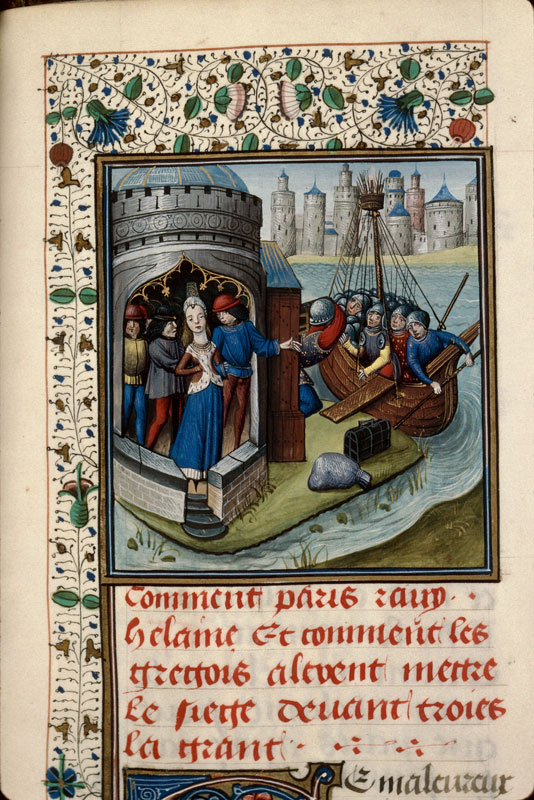 Comment paris rauy
helaine Et comment les
gregois alerent mettre
le siege deuant troies
la grant
E maleureux